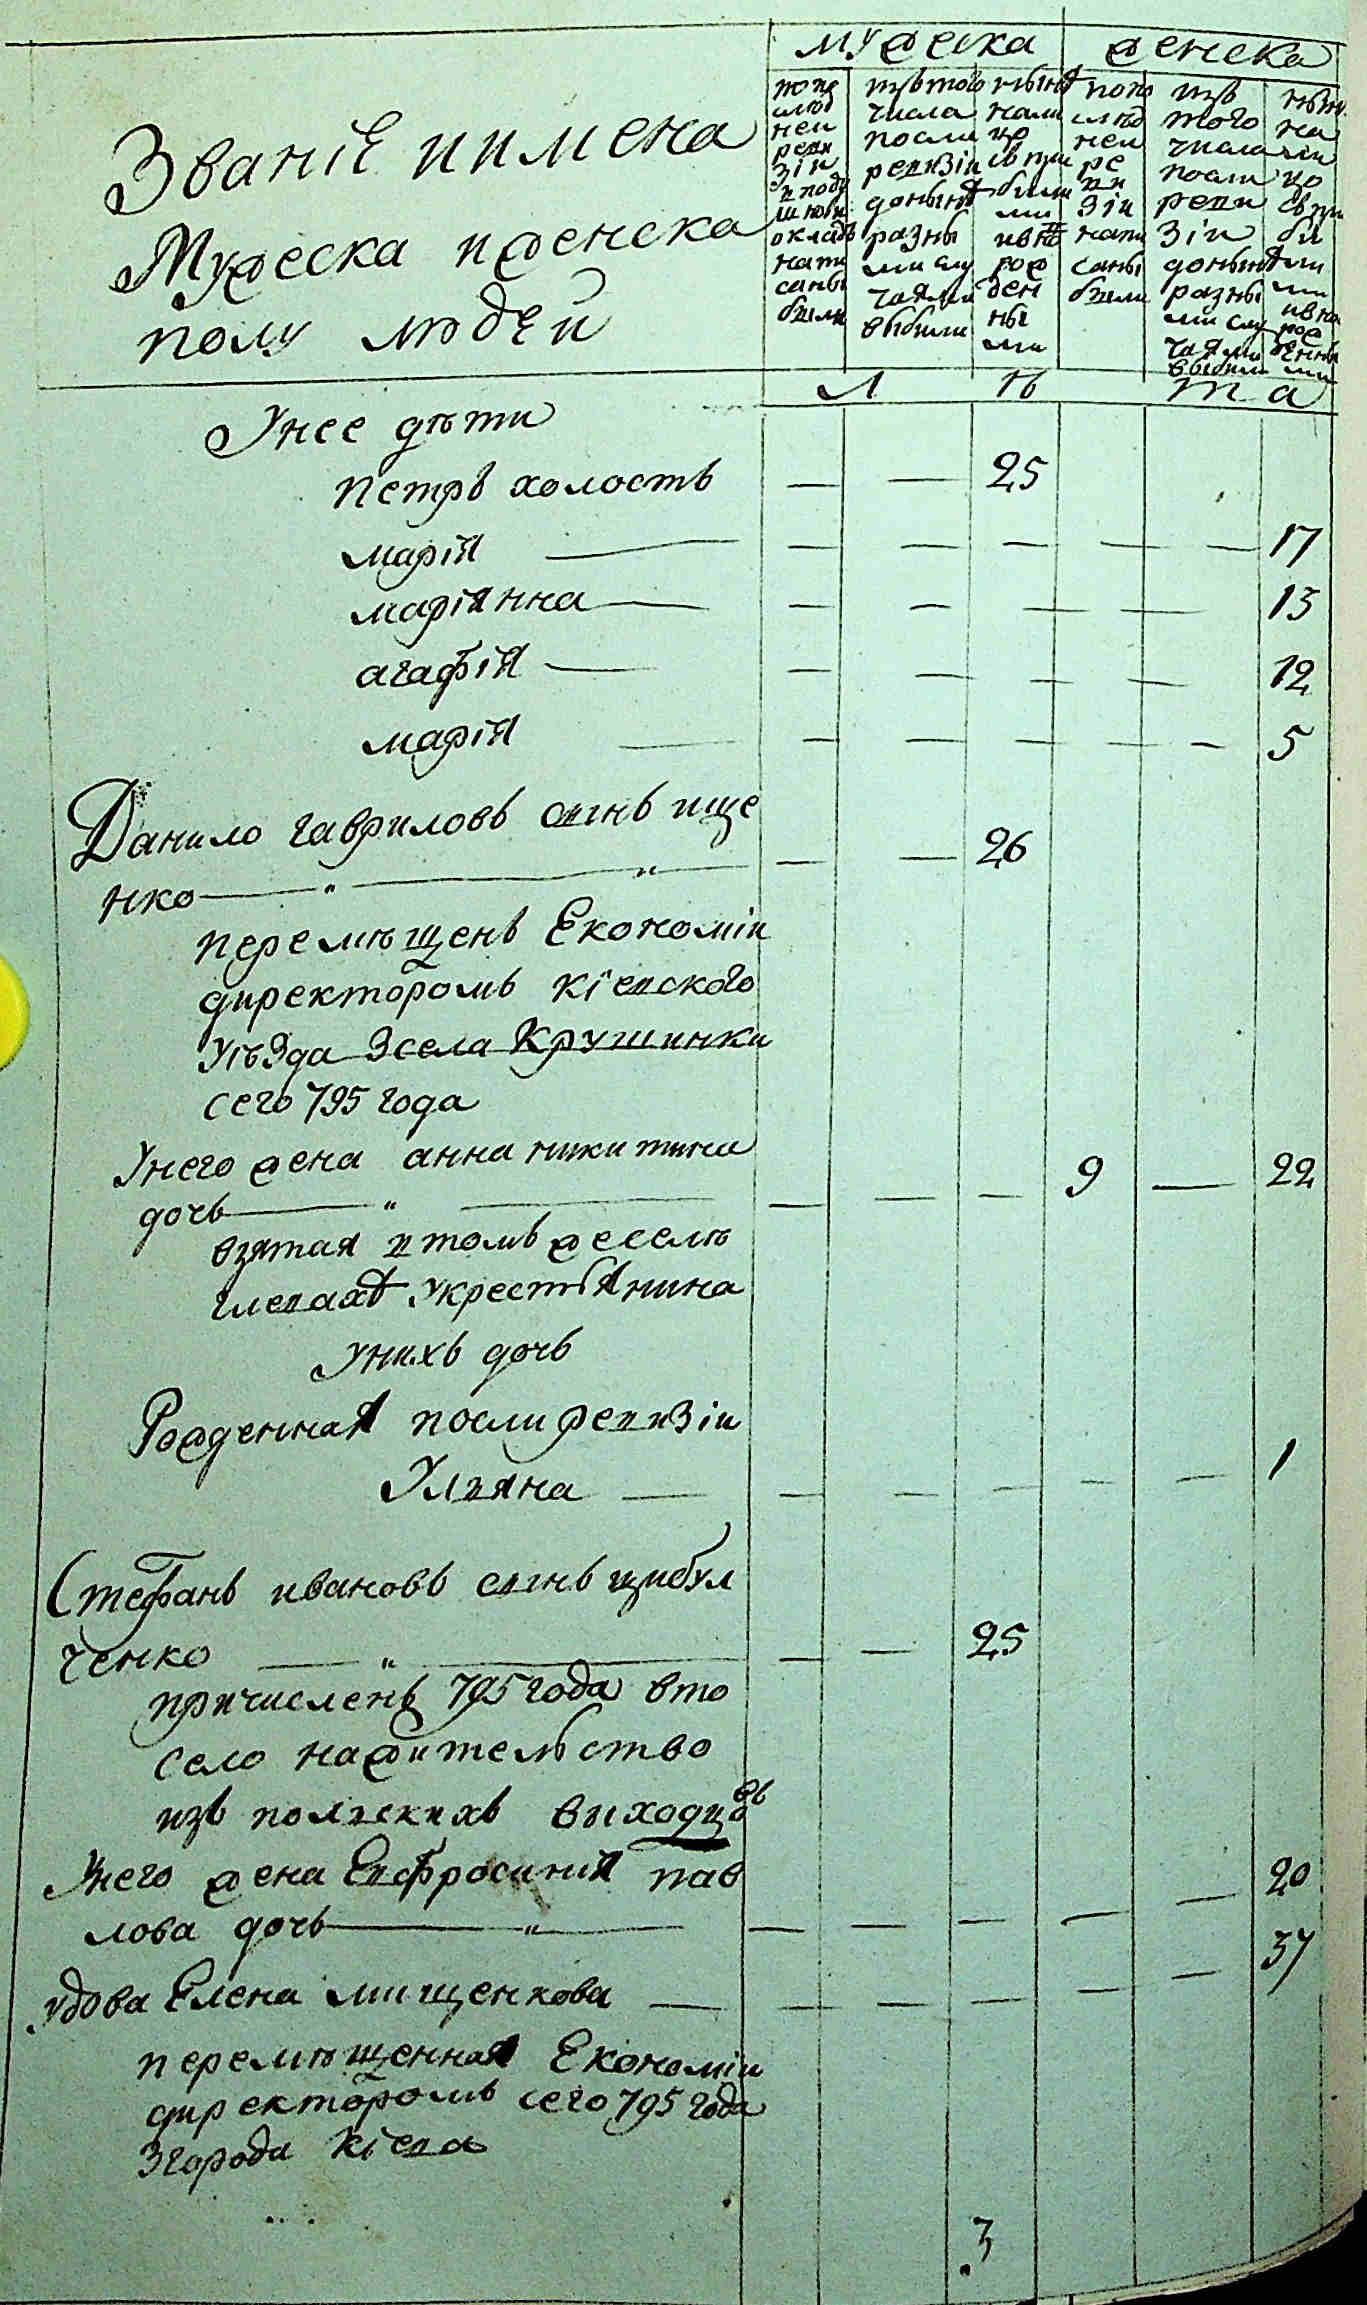 мужеска женска
по последней ревизіи в подушномъ окладѣ написаны были
изъ того числа после ревизіи до нынѣ разными случаями выбыли
нынѣ
по последней ревизіи написаны были
изъ того числа после ревизіи до нынѣ разными случаями выбыли
Званіе и имена
Мужеска и женска
полу людей
л ѣ т а
У нее дѣти
петръ холостъ — — 25
марія — — — — — — 17
маріянна — — — — — 13
агафія — — — — — — 12
марія — — — — — — 5
Данило гавриловъ сынъ ище
нко — „ — „ — — — 26
перемѣщенъ Економіи
директоромъ кіевского
уѣзда Зсела Крушинки
сего 795 года
У него жена анна никитина
дочь — „ — — — — 9 — 22
взятая втомъ жеселѣ
глевахѣ укрестьянина
Унихъ дочь
Рожденная посли ревизіи
Улияна — — — — — — 1
Стефанъ ивановъ сынъ цибул
ченко — „ — — — 25
причисленъ 795 года вто
село нажительство
изъ полскихъ выходцовъ
Унего жена Евфросинія пав
лова дочь — „ — — — — — — 20
удова Елена мищенкова — — — — — — 37
перемѣщенная Економіи
директоромъ сего 795 года
Згорода кіева
3